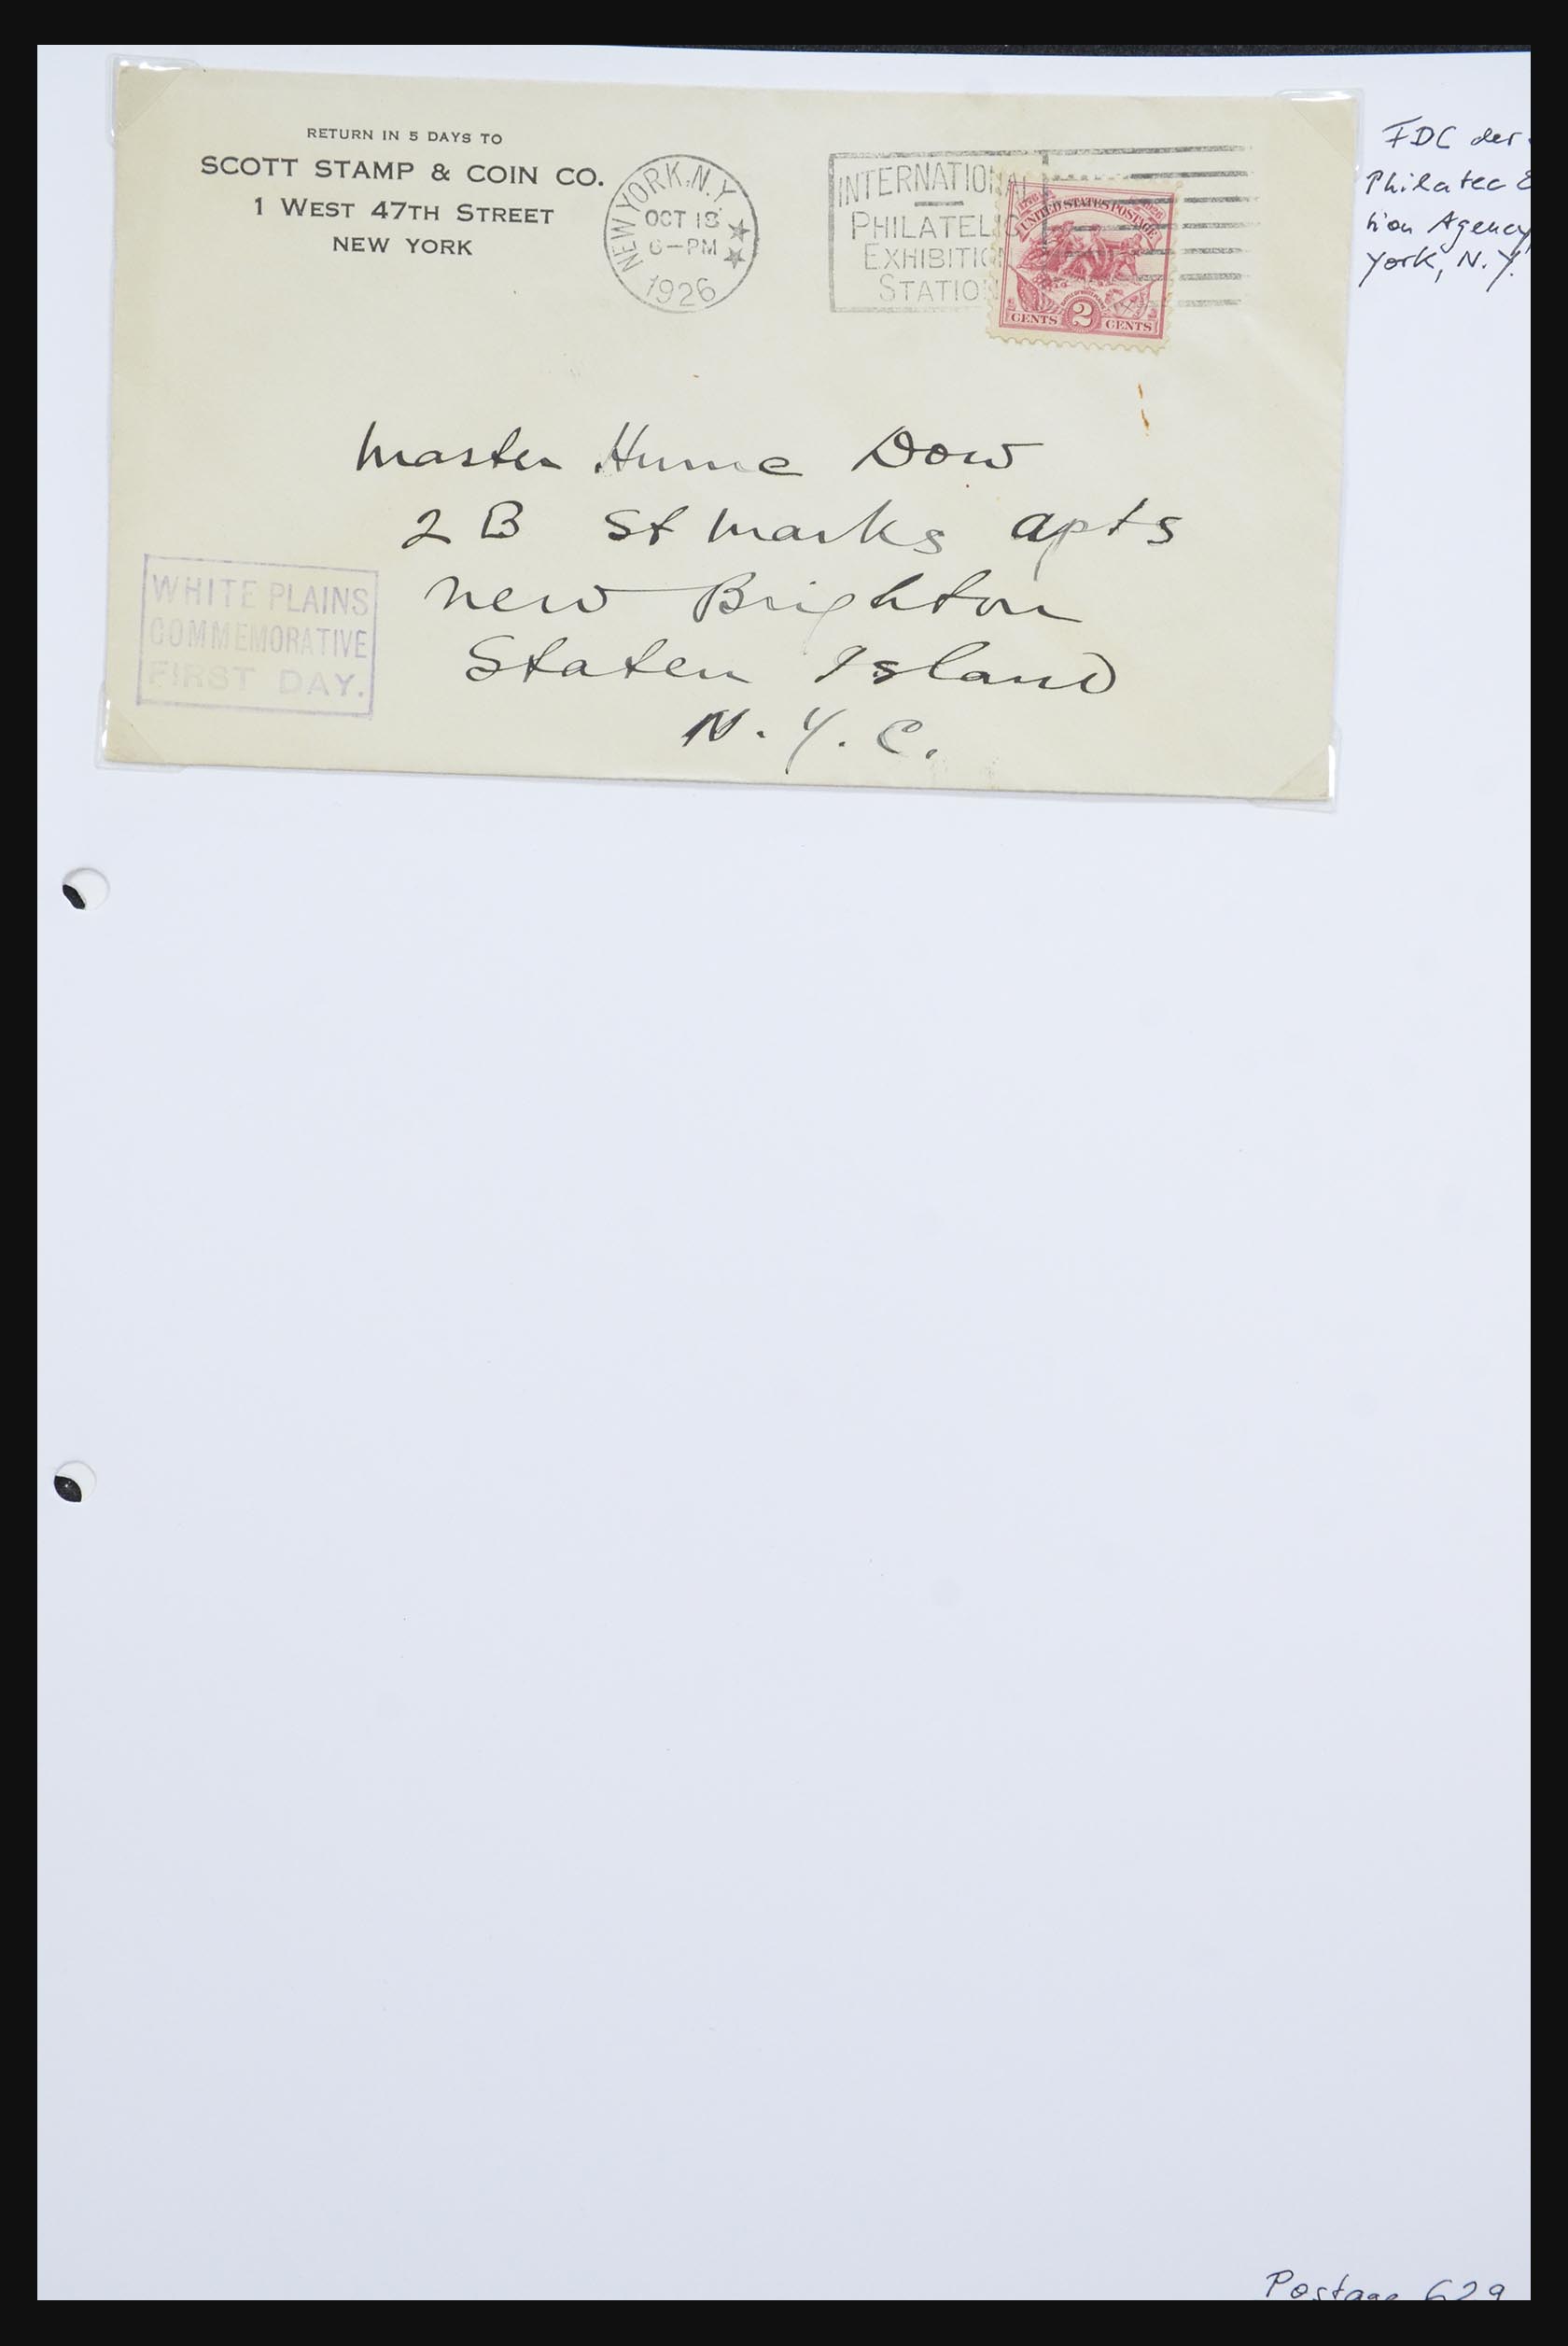 RETURN IN 5 DAYS TO
SCOTT STAMP & COIN CO.
1 WEST 47TH STREET
NEW YORK
NEW YORK, N.Y.
OCT 18
6-PM
1926
INTERNATIONAL
PHILATELIC
EXHIBITION
STATIO
UNITED STATES POSTAGE
CENTS 2 CENTS
FDC der
Philatec E
tion Agency
York, N.Y.
Master Hume Dow
2 B St Marks apts
New Brighton
Staten Island
N.Y.C.
WHITE PLAINS
COMMEMORATIVE
FIRST DAY.
Postage 629